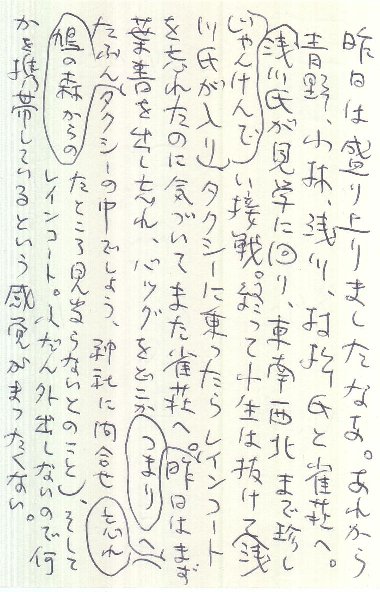 昨日は盛り上りましたなあ。あれから
青野、小林、浅川、村松氏と雀荘へ。
浅川氏が見学に回り、東南西北まで珍し
じゃんけんで
い接戦。終って小生は抜けて(浅
川氏が入り)タクシーに乗ったらレインコート
を忘れたのに気づいてまた雀荘へ。昨日はまず
つまり
葉書を出し忘れ、バッグをどこかへ
忘れ
(たぶんタクシーの中でしょう、神社に問合せ
鳩の森からの
たところ見当らないとのこと)、そして
レインコート。ふだん外出しないので何
かを携帯しているという感覚がまったくない。